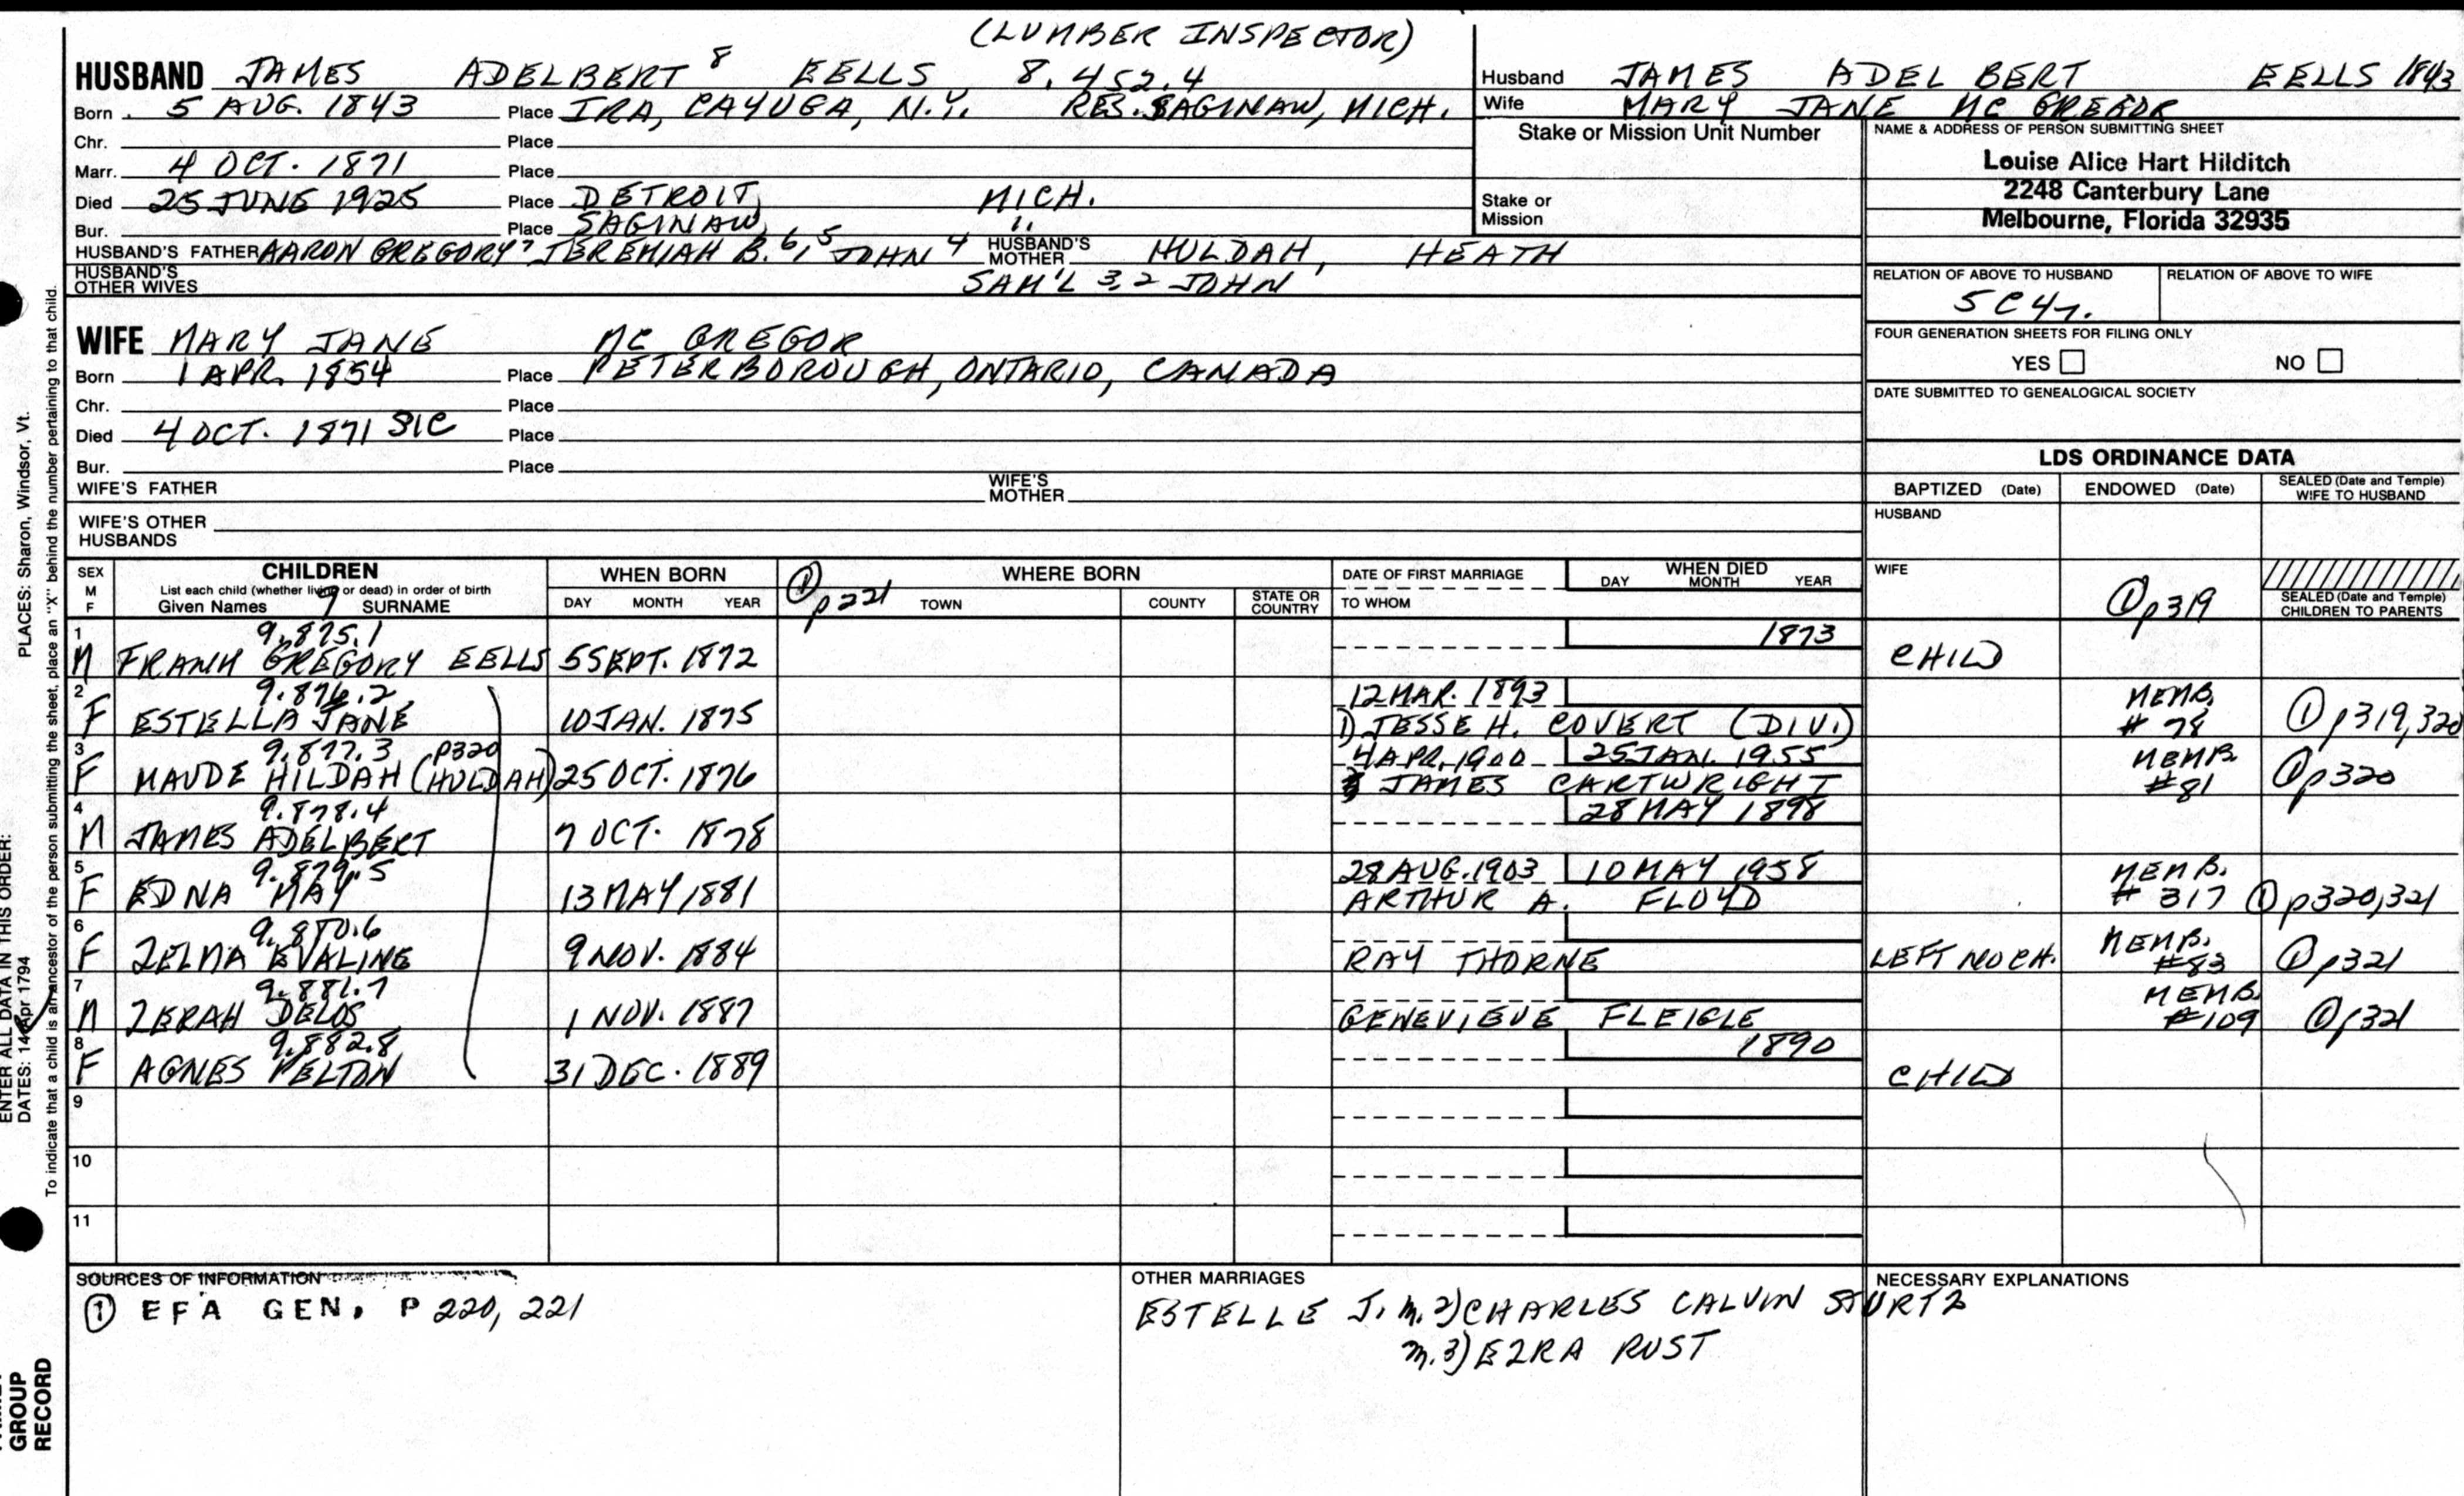 (LUMBER INSPECTOR)
HUSBAND JAMES ADELBERT 8 EELLS 8.452.4
Born 5 AUG. 1843 Place IRA, CAYUGA, N.Y. RES. SAGINAW, MICH.
Chr. Place
Marr. 4 OCT. 1871 Place
Died 25 JUNE 1925 Place DETROIT, MICH.
Bur. Place SAGINAW, "
HUSBAND'S FATHER AARON GREGORY 7 JEREMIAH B. 6, 5 JOHN 4 HUSBAND'S MOTHER HULDAH, HEATH
HUSBAND'S OTHER WIVES SAM'L 3, 2 JOHN
Husband JAMES ADELBERT EELLS 1843
Wife MARY JANE MC GREGOR
Stake or Mission Unit Number
Stake or Mission
NAME & ADDRESS OF PERSON SUBMITTING SHEET
Louise Alice Hart Hilditch
2248 Canterbury Lane
Melbourne, Florida 32935
RELATION OF ABOVE TO HUSBAND RELATION OF ABOVE TO WIFE
5C4r.
FOUR GENERATION SHEETS FOR FILING ONLY
YES NO
DATE SUBMITTED TO GENEALOGICAL SOCIETY
WIFE MARY JANE MC GREGOR
Born 1 APR. 1854 Place PETERBOROUGH, ONTARIO, CANADA
Chr. Place
Died 4 OCT. 1871 SIC Place
Bur. Place
WIFE'S FATHER WIFE'S MOTHER
WIFE'S OTHER HUSBANDS
LDS ORDINANCE DATA
BAPTIZED (Date) ENDOWED (Date) SEALED (Date and Temple) WIFE TO HUSBAND
HUSBAND
WIFE ① p319
SEALED (Date and Temple) CHILDREN TO PARENTS
SEX M F
CHILDREN
List each child (whether living or dead) in order of birth
Given Names 9 SURNAME
WHEN BORN
DAY MONTH YEAR
① p221
WHERE BORN
TOWN COUNTY STATE OR COUNTRY
DATE OF FIRST MARRIAGE
TO WHOM
WHEN DIED
DAY MONTH YEAR
1 9.875.1 1873
M FRANK GREGORY EELLS 5 SEPT. 1872 CHILD
2 9.876.2 12 MAR. 1893 MEMB.
F ESTELLA JANE 10 JAN. 1875 1) JESSE H. COVERT (DIV.) # 78 ① p319,320
3 9.877.3 p320 4 APR. 1900 25 JAN. 1955 MEMB.
F MAUDE HILDAH (HULDAH) 25 OCT. 1876 JAMES CARTWRIGHT #81 ① p320
4 9.878.4 28 MAY 1898
M JAMES ADELBERT 7 OCT. 1878
5 9.879.5 28 AUG. 1903 10 MAY 1958 MEMB.
F EDNA MAY 13 MAY 1881 ARTHUR A. FLOYD # 317 ① p320,321
6 9.880.6 MEMB.
F ZELMA EVALINE 9 NOV. 1884 RAY THORNE LEFT NO CH. #83 ① p321
7 9.881.7 MEMB.
M ZERAH DELOS 1 NOV. 1887 GENEVIEVE FLEIGLE #109 ① p321
8 9.882.8 1890
F AGNES PELTON 31 DEC. 1889 CHILD
9
10
11
SOURCES OF INFORMATION
① EFA GEN. P 220, 221
OTHER MARRIAGES
ESTELLE J. m. 2) CHARLES CALVIN STURTZ
m. 3) EZRA RUST
NECESSARY EXPLANATIONS
ENTER ALL DATA IN THIS ORDER:
DATES: 14 Apr 1794 PLACES: Sharon, Windsor, Vt.
To indicate that a child is an ancestor of the person submitting the sheet, place an "X" behind the number pertaining to that child.
GROUP
RECORD